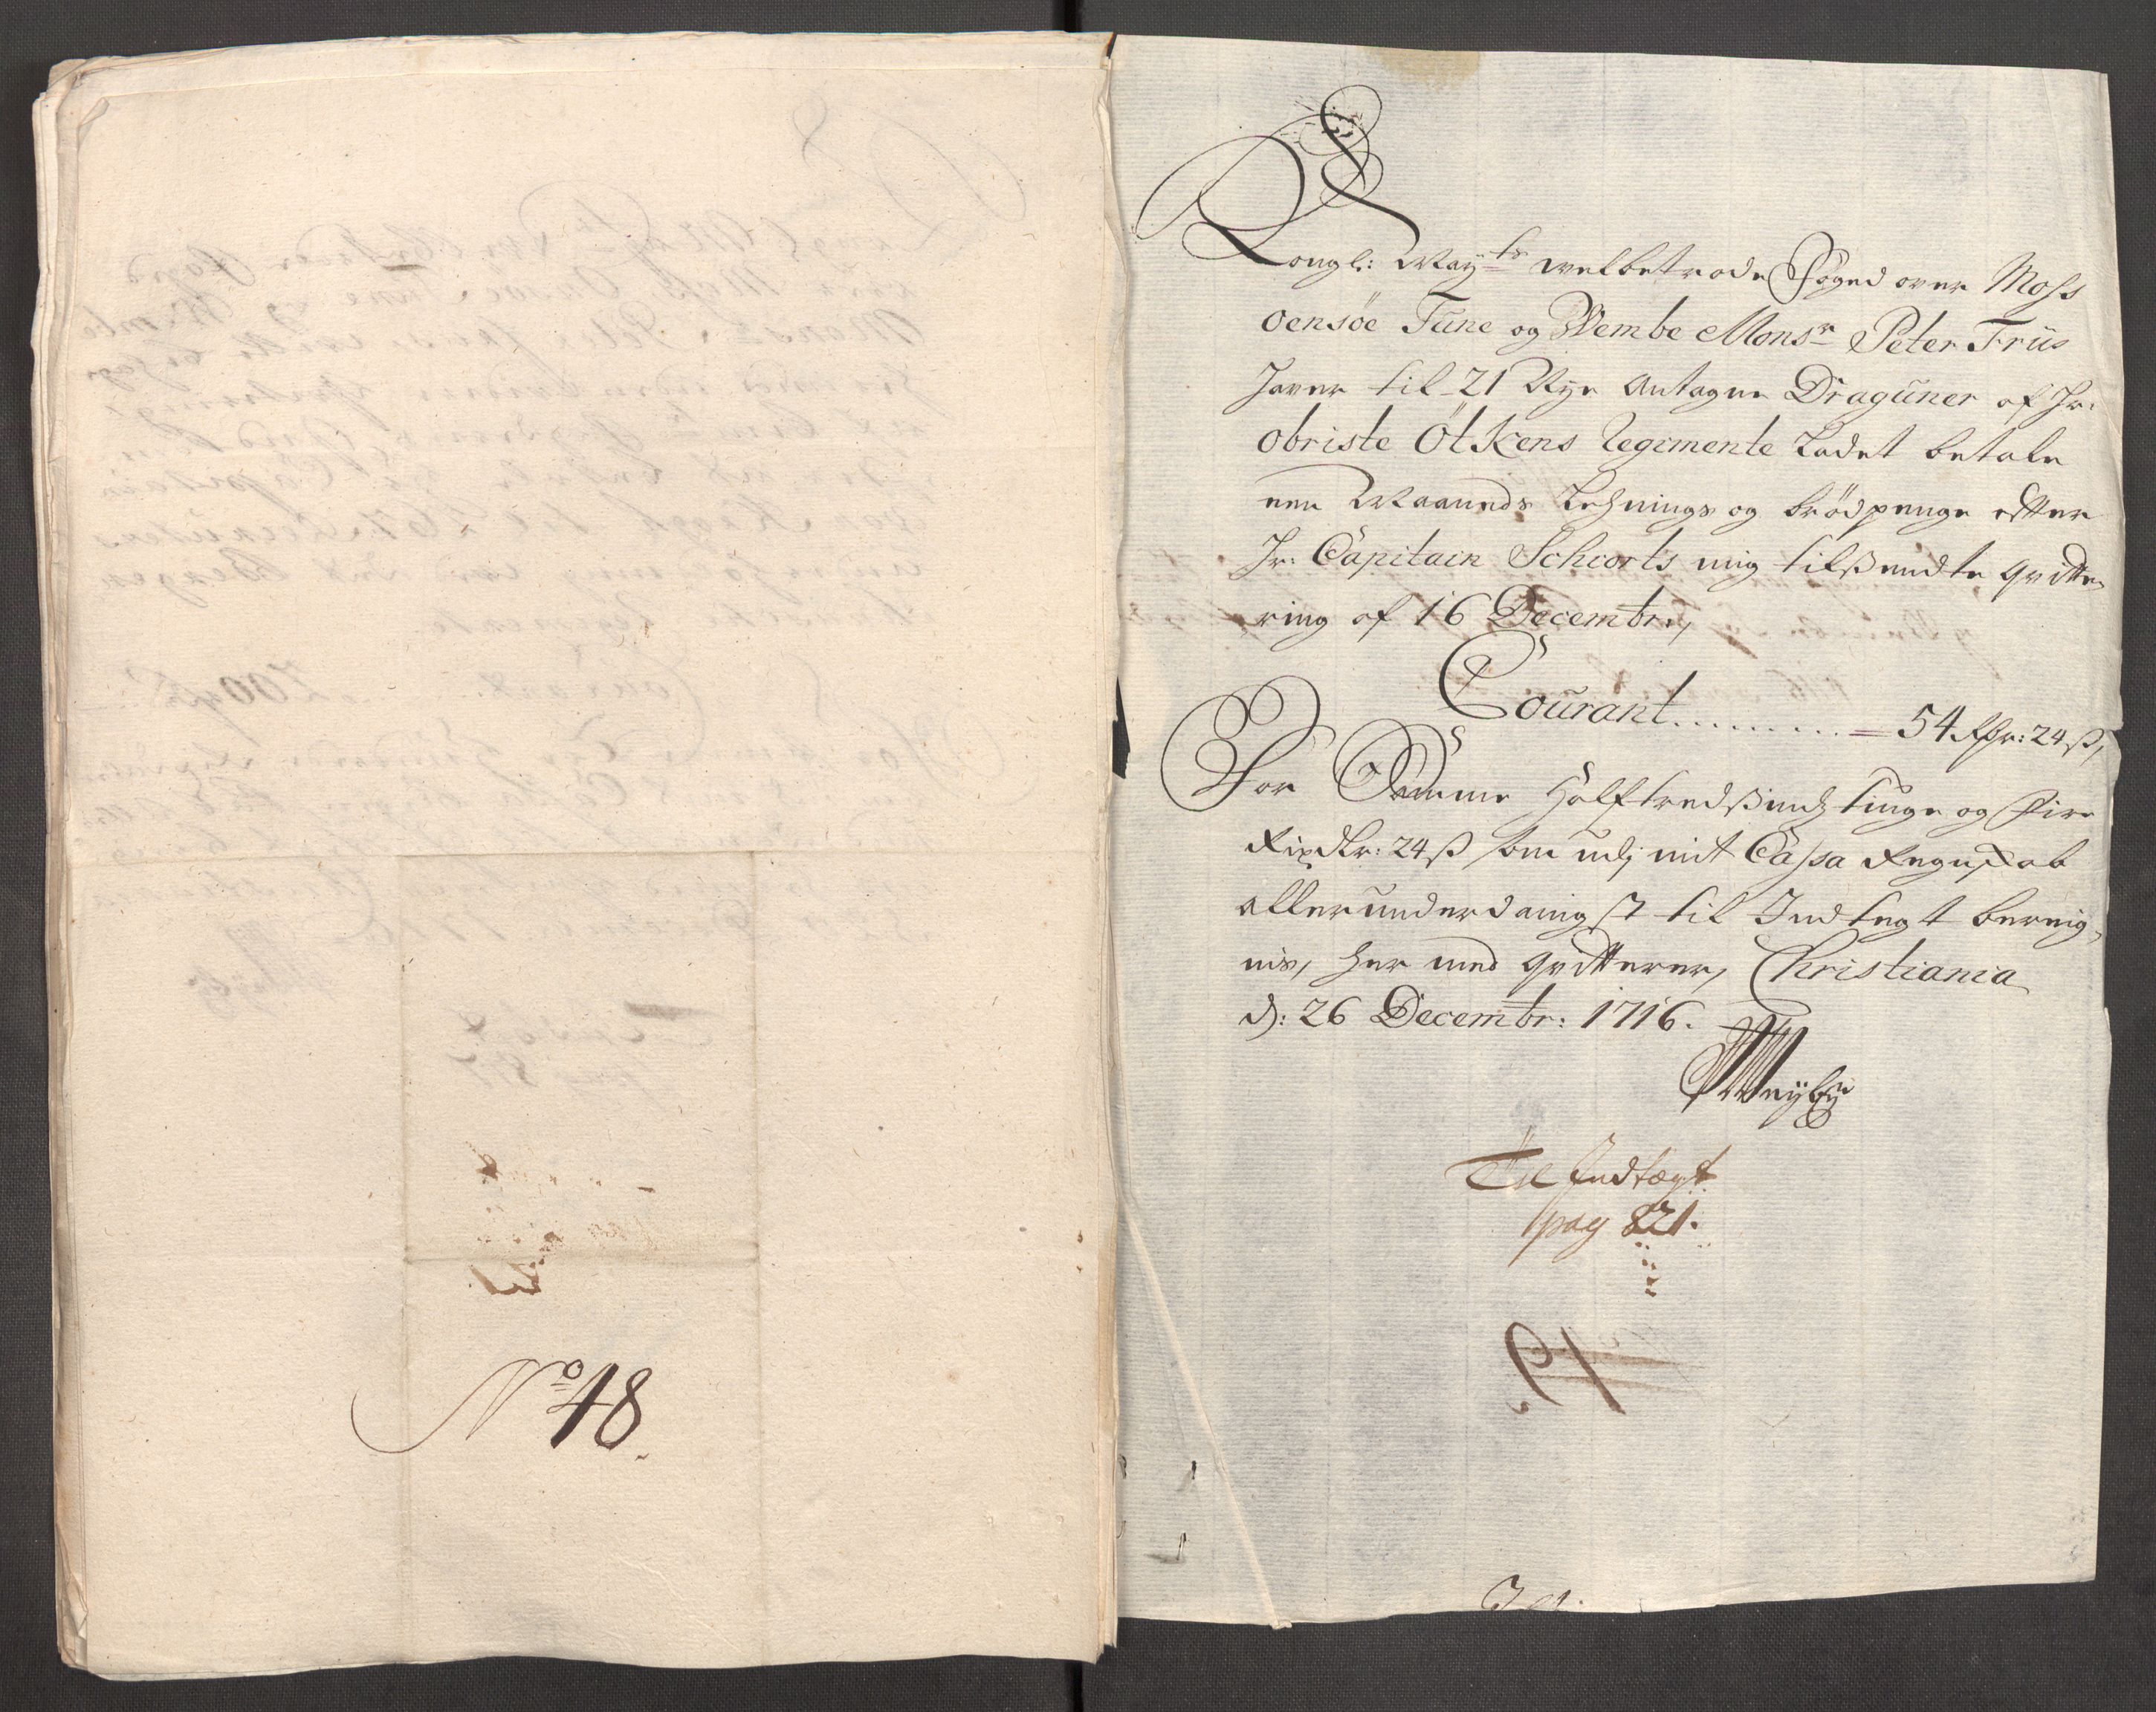 No 48.
Kongl: May:ts welbetrode Foged over Moss
oensöe Tune og Wembe Monsr Peter Friis
Haver til 21 Nye Antagne Draguner af Hr:
Obriste Ötkens Regimente Ladet betale
een Maaneds Lehnings og brödpenge efter
Hr: Capitain Schiorts mig tilßendte qvitte,
ring af 16 Decembr.,
Courant . . . . . . . . . = 54 Rdr: 24 ß,
For Samme Halftredßindstiuge og Fire
Rixdlr: 24 ß som udj mit Cassa Regnskab
allerunderdanigst til Indtegt bereig,
nis, her med qvitterer, Christiania
d: 26 Decembr: 1716.
Til Indtægt
pag 821.